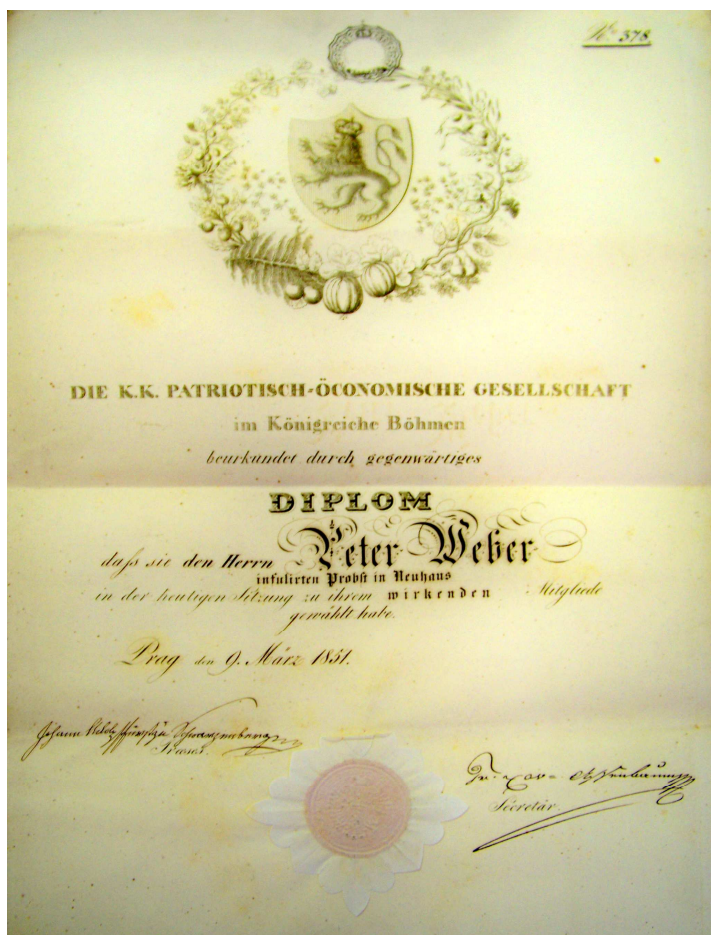 No 378
DIE K.K. PATRIOTISCH-ÖCONOMISCHE GESELLSCHAFT
im Königreiche Böhmen
beurkundet durch gegenwärtiges
DIPLOM
daſs sie den Herrn Peter Weber
infulirten Probst in Neuhaus
in der heutigen Sitzung zu ihrem wirkenden Mitgliede
gewählt habe.
Prag den 9. März 1851.
Johann Schwarzenberg
Präses.
Fr. Xav.
Secretär